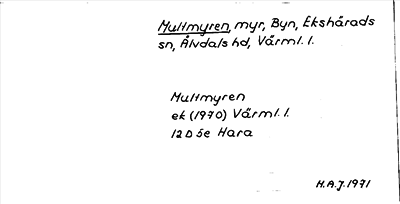 Multmyren, myr, Byn, Ekshärads
sn, Älvdals hd, Värml. l.
Multmyren
ek (1970) Värml. l.
12 D 5e Hara
H.A.J. 1971